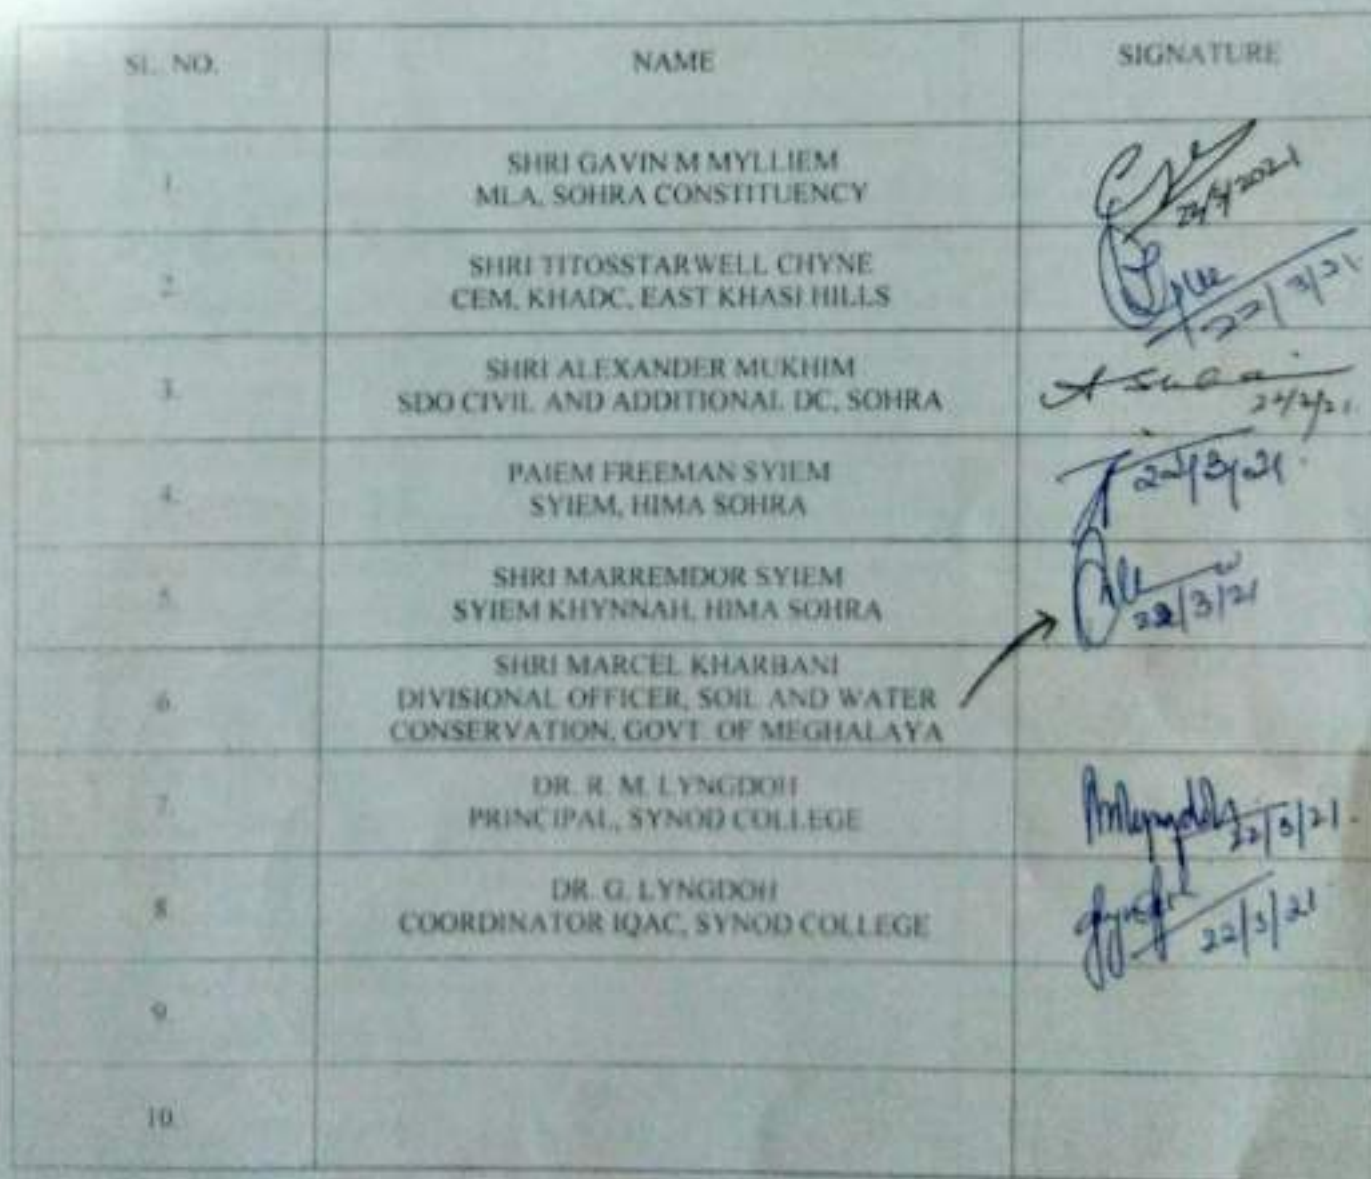 SL. NO. NAME SIGNATURE
1. SHRI GAVIN M MYLLIEM
MLA, SOHRA CONSTITUENCY
2. SHRI TITOSSTARWELL CHYNE
CEM, KHADC, EAST KHASI HILLS
22/3/21
3. SHRI ALEXANDER MUKHIM
SDO CIVIL AND ADDITIONAL DC, SOHRA
4. PAIEM FREEMAN SYIEM
SYIEM, HIMA SOHRA
22/3/21
5. SHRI MARREMDOR SYIEM
SYIEM KHYNNAH, HIMA SOHRA
22/3/21
6. SHRI MARCEL KHARBANI
DIVISIONAL OFFICER, SOIL AND WATER
CONSERVATION, GOVT. OF MEGHALAYA
7. DR. R. M. LYNGDOH
PRINCIPAL, SYNOD COLLEGE
22/3/21
8. DR. G. LYNGDOH
COORDINATOR IQAC, SYNOD COLLEGE
22/3/21
9.
10.